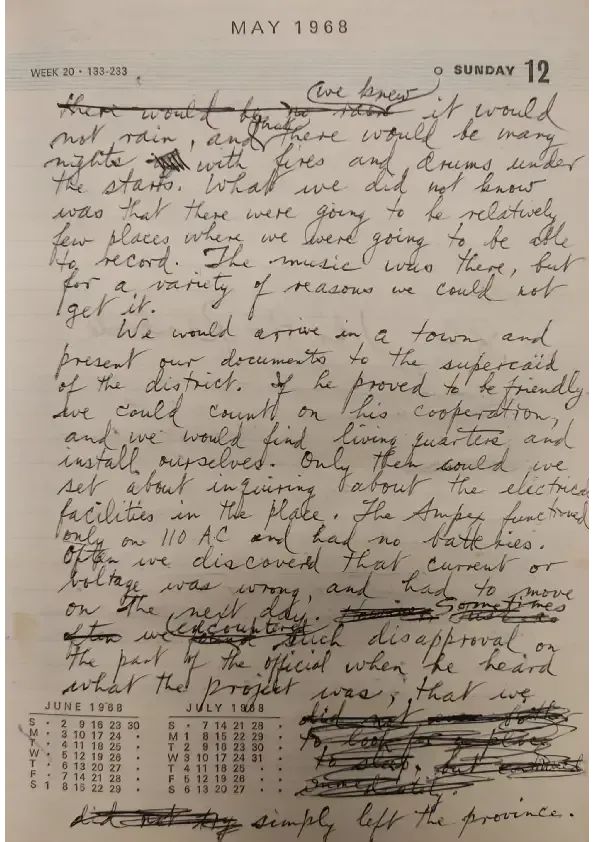 MAY 1968
WEEK 20 · 133-233
SUNDAY 12
we knew
there would be no rain it would
not rain, and that there would be many
nights with fires and drums under
the stars. What we did not know
was that there were going to be relatively
few places where we were going to be able
to record. The music was there, but
for a variety of reasons we could not
get it.
We would arrive in a town and
present our documents to the supercaid
of the district. If he proved to be friendly
we could count on his cooperation,
and we would find living quarters and
install ourselves. Only then could we
set about inquiring about the electrical
facilities in the place. The Ampex functioned
only on 110 AC and had no batteries.
Often we discovered that current or
voltage was wrong, and had to move
on the next day. Sometimes
often we encountered found such disapproval on
the part of the official when he heard
what the project was, that we
did not even bother
to look for a place
to stay, but
immediately.
did not try simply left the province.
JUNE 1968
S · 2 9 16 23 30
M · 3 10 17 24 ·
T · 4 11 18 25 ·
W · 5 12 19 26 ·
T · 6 13 20 27 ·
F · 7 14 21 28 ·
S 1 8 15 22 29 ·
JULY 1968
S · 7 14 21 28 ·
M 1 8 15 22 29 ·
T 2 9 16 23 30 ·
W 3 10 17 24 31 ·
T 4 11 18 25 · ·
F 5 12 19 26 · ·
S 6 13 20 27 · ·